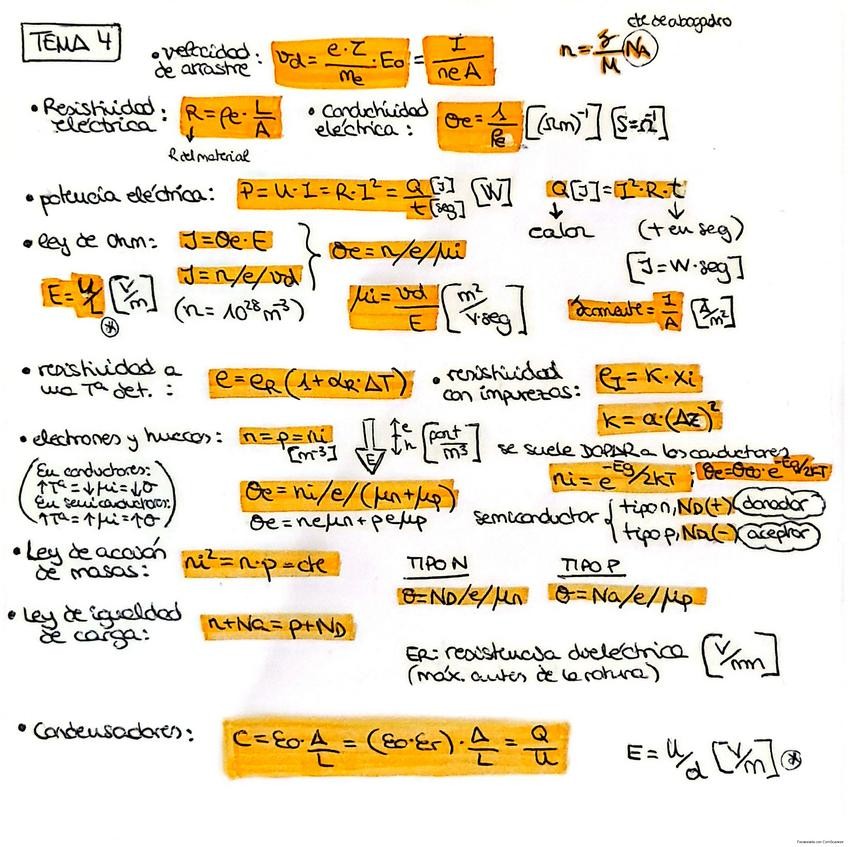 TEMA 4
cte de abogadro
• velocidad de arrastre: vd = e·τ/me · E₀ = I/neA
n = ρ/M NA
• Resistividad eléctrica: R = ρe · L/A
R del material
• Conductividad eléctrica: σe = 1/ρe [(Ωm)⁻¹] [S=Ω⁻¹]
• potencia eléctrica: P = U·I = R·I² = Q [J]/t [seg] [W]
Q[J] = I²·R·t
calor (t en seg)
[J = W·seg]
• ley de Ohm: J = σe·E
J = n/e/vd
σe = n/e/μi
E = U/L [V/m] *
(n = 10²⁸ m⁻³)
μi = vd/E [m²/V·seg]
Jcorriente = I/A [A/m²]
• resistividad a una Tª det.: ρ = ρR (1 + αR·ΔT)
• resistividad con impurezas: ρI = K·xi
k = α·(ΔZ)²
• electrones y huecos: n = p = ni
[m⁻³]
E ↑e ↓h [port/m³]
se suele DOPAR a los conductores
(En conductores:
↑Tª = ↓μi = ↓σ
En semiconductores:
↑Tª = ↑μi = ↑σ)
σe = ni/e/(μn+μp)
σe = neμn + peμp
ni = e^-Eg/2kT ; σe = σ₀·e^-Eg/2kT
semiconductor { tipo n, ND(+) donador
tipo p, Na(-) aceptor
• Ley de acción de masas: ni² = n·p = cte
TIPO N
σ = ND/e/μn
TIPO P
σ = Na/e/μp
• Ley de igualdad de carga: n + Na = p + ND
ER: resistencia dieléctrica [V/mm]
(máx. antes de la rotura)
• Condensadores: C = ε₀·A/L = (ε₀·εr)·A/L = Q/U
E = U/d [V/m] *
Escaneado con CamScanner